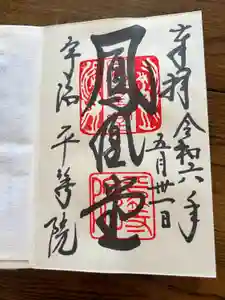 奉拝 令和六年
五月卅一日
鳳凰堂
宇治 平等院